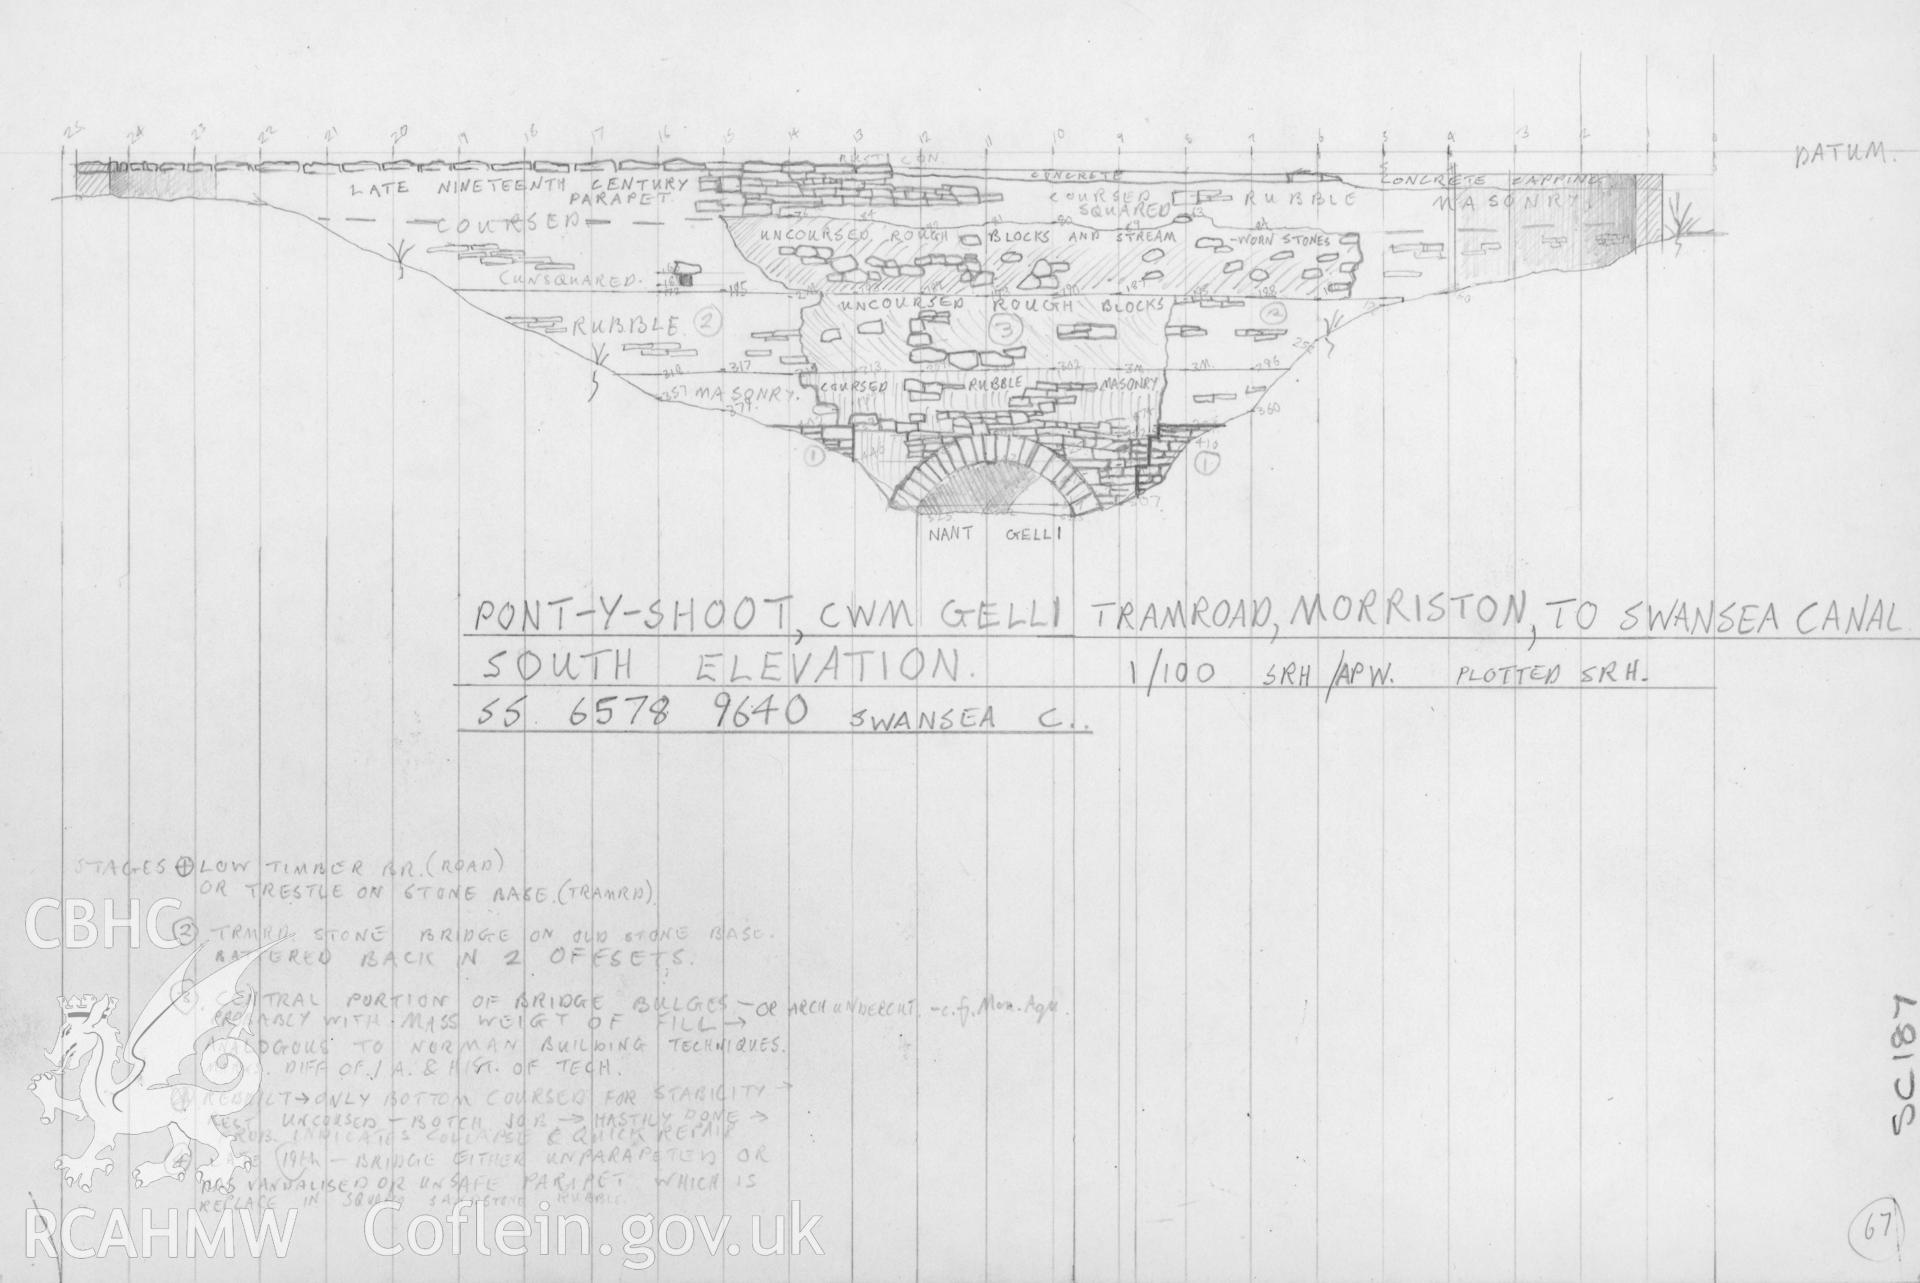 25 24 23 22 21 20 19 18 17 16 15 14 13 12 11 10 9 8 7 6 5 4 3 2 1 0
DATUM.
CONCRETE
LATE NINETEENTH CENTURY
PARAPET.
COURSED
SQUARED
RUBBLE
CONCRETE CAPPING
MASONRY.
COURSED
UNCOURSED ROUGH BLOCKS AND STREAM -WORN STONES
(UNSQUARED.
195
UNCOURSED ROUGH BLOCKS
RUBBLE 2
3
2
317 313 302 296
357 MASONRY.
377.
COURSED RUBBLE MASONRY
360
410
1
1
507.
NANT GELLI
PONT-Y-SHOOT, CWM GELLI TRAMROAD, MORRISTON, TO SWANSEA CANAL
SOUTH ELEVATION. 1/100 SRH/APW. PLOTTED SRH.
SS 6578 9640 SWANSEA C..
STAGES 1 LOW TIMBER BR. (ROAD)
OR TRESTLE ON STONE BASE. (TRAMRD)
2 TRMRD STONE BRIDGE ON OLD STONE BASE.
BATTERED BACK IN 2 OFFSETS.
3 CENTRAL PORTION OF BRIDGE BULGES - OR ARCH UNDERCUT. - c.f. Mon. Aqu.
PROBABLY WITH MASS WEIGT OF FILL →
ANALOGOUS TO NORMAN BUILDING TECHNIQUES.
DIFF OF I A. & HIST. OF TECH.
REBUILT → ONLY BOTTOM COURSED FOR STABILITY →
REST UNCOURSED - BOTCH JOB → HASTILY DONE →
PROB. INDICATES COLLAPSE & QUICK REPAIR
4 LATE 19th - BRIDGE EITHER UNPARAPETED OR
HAS VANDALISED OR UNSAFE PARAPET WHICH IS
REPLACE IN SQUARED SANDSTONE RUBBLE.
SC187
67
CBHC
RCAHMW Coflein.gov.uk